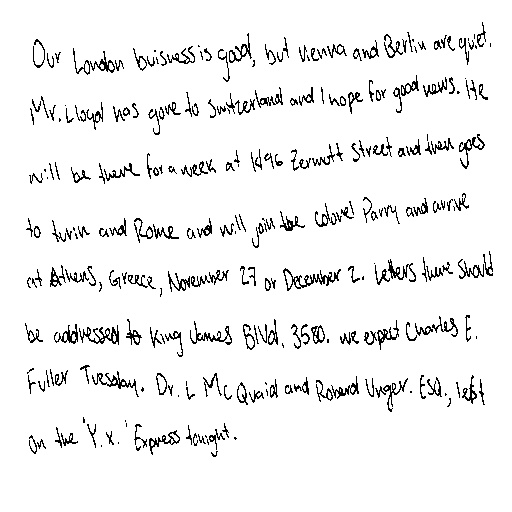 Our London buisness is good, but Vienna and Berlin are quiet.
Mr. Lloyd has gone to Switzerland and I hope for good news. He
will be there for a week at 1496 Zermott Street and then goes
to turin and Rome and will join the colonel Parry and arrive
at Athens, Greece, November 27 or December 2. Letters there should
be addressed to King James Blvd. 3580. we expect Charles E.
Fuller Tuesday. Dr. L McQuaid and Robert Unger. ESQ., left
on the 'Y.X.' Express tonight.